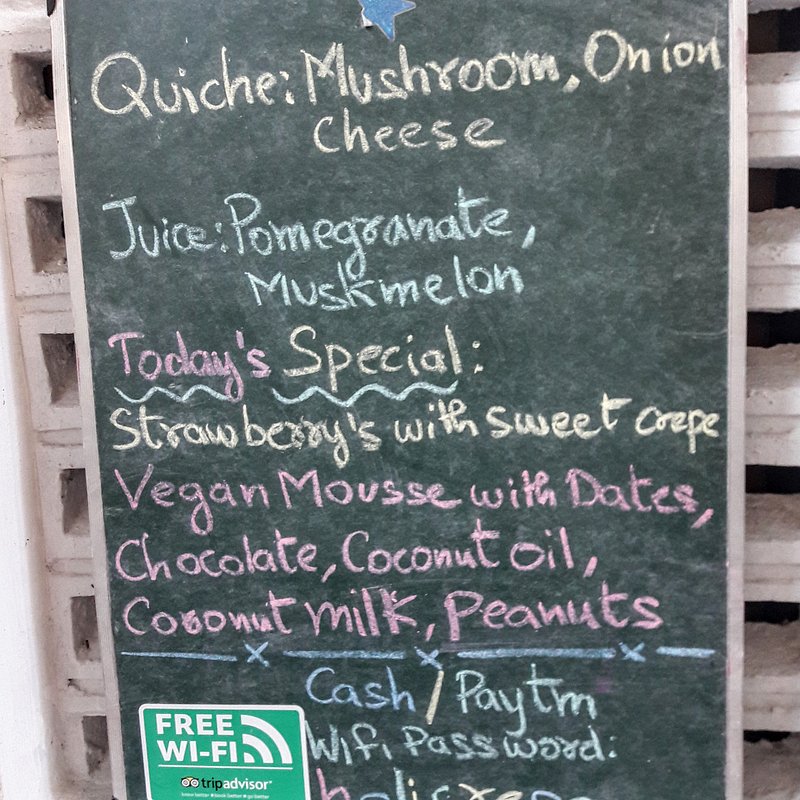 Quiche: Mushroom, Onion
Cheese
Juice: Pomegranate,
Muskmelon
Today's Special:
Strawberry's with sweet crepe
Vegan Mousse with Dates,
Chocolate, Coconut oil,
Coconut milk, Peanuts
Cash / Paytm
Wifi Password:
FREE
WI-FI
tripadvisor